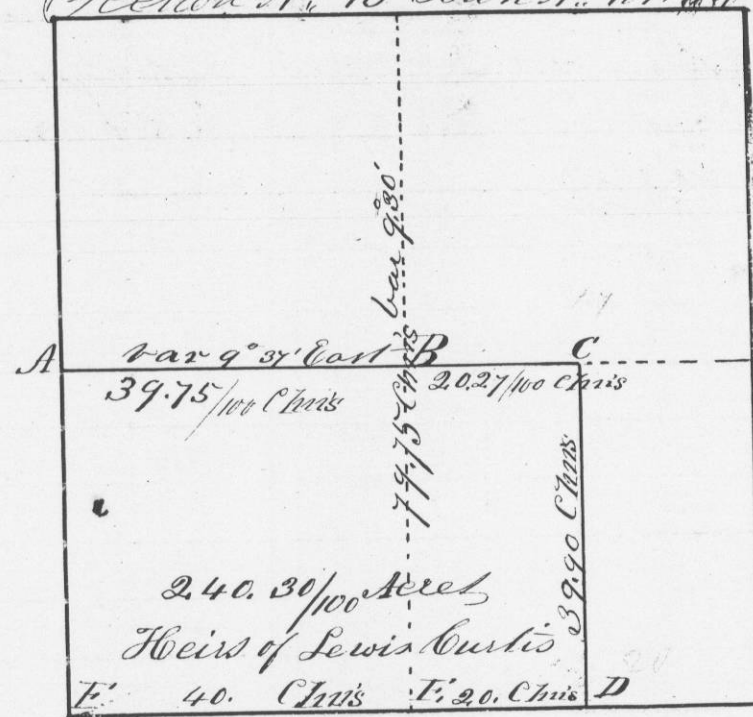 var 9°30'
A var 9° 37' East B C
39.75/100 Chns 20.27/100 Chns
79.75 Chns
39.90 Chns
240.30/100 Acres
Heirs of Lewis Curtis
F 40. Chns E 20. Chns D